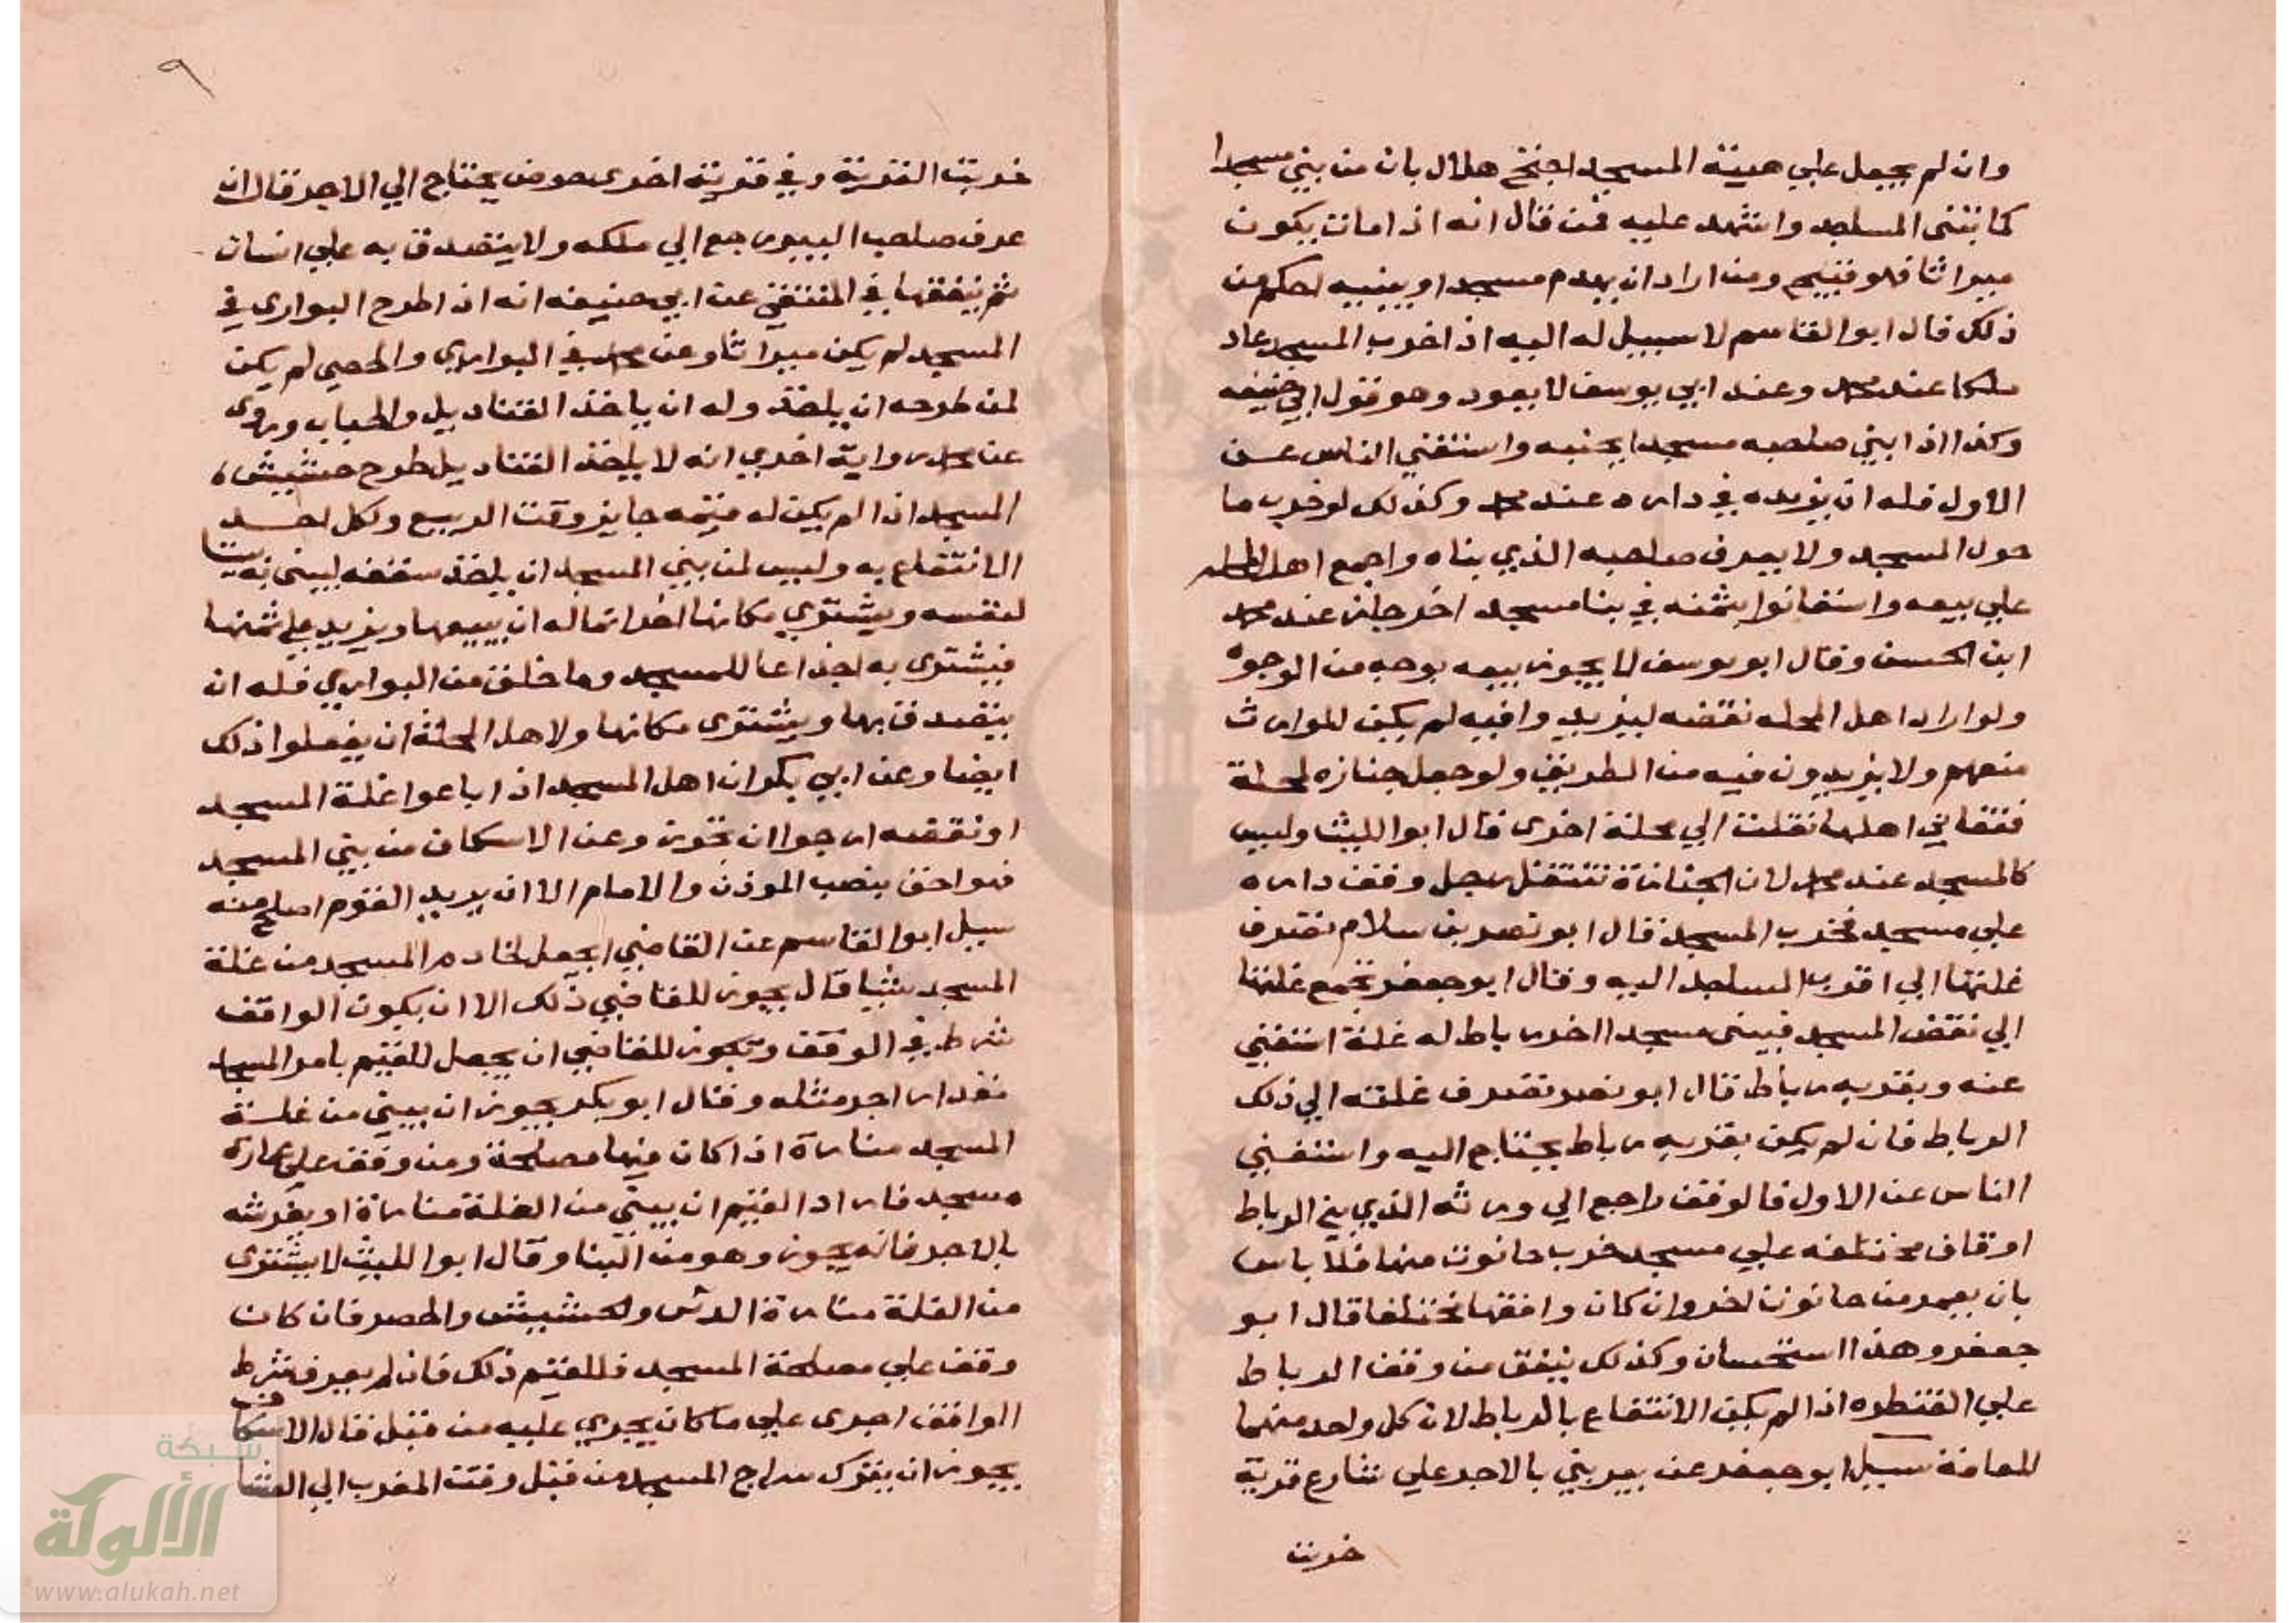 وان لم يجعل علي هيئة المسجد احتج هلال بان من بني مسجدا
كما تبنى المساجد واشهد عليه فمن قال انه اذا مات يكون
ميراثا فهو قبيح ومن اراد ان يهدم مسجدا ويبنيه احكم من
ذلك قال ابوالقاسم لا سبيل له اليه اذا خرب المسجد عاد
ملكا عند محمد وعند ابي يوسف لا يعود وهو قول ابي حنيفه
وكذا اذا بني صاحبه مسجدا بجنبه واستغني الناس عن
الاول فله ان يزيده في داره عند محمد وكذلك لو خرب ما
حول المسجد ولا يعرف صاحبه الذي بناه واجمع اهل المحله
علي بيعه واستعانوا بثمنه في بنا مسجد اخر جاز عند محمد
ابن الحسن وقال ابو يوسف لا يجوز بيعه بوجه من الوجوه
ولو اراد اهل المحله نقضه ليزيد وافيه لم يكن للوارث
منعهم ولا يزيدون فيه من الطريق ولو جعل جنازه لمحلة
فتفاني اهلها نقلت الي محلة اخرى قال ابوا الليث وليس
كالمسجد عند محمد لان الجنازة تنتقل رجل وقف داره
علي مسجد فخرب المسجد قال ابو نصر بن سلام تصرف
غلتها الي اقرب المساجد اليه وقال ابو جعفر تجمع غلتها
الي نقض المسجد فيبنى مسجدا اخر رباط له غلة استغني
عنه وبقربه رباط قال ابو نصر تصرف غلته الي ذلك
الرباط فان لم يكن بقربه رباط يحتاج اليه واستغني
الناس عن الاول فالوقف راجع الي ورثه الذي بني الرباط
اوقاف مختلفه علي مسجد خرب حانوت منها فلا باس
بان يعمر من حانوت اخر وان كان واقفها مختلفا قال ابو
جعفر وهذا استحسان وكذلك ينفق من وقف الرباط
علي القنطره اذا لم يكن الانتفاع بالرباط لان كل واحد منهما
للعامة سيل ابو جعفر عن بير بني بالاجر علي شارع قرية
خربت
٩
خربت القرية وفي قرية اخرى حوض يحتاج الي الاجر قال ان
عرف صاحب البير رجع الي ملكه ولا يتصدق به علي انسان
ثم ينفقها في المنتقي عن ابي حنيفه انه اذا طرح البواري في
المسجد لم يكن ميراثا وعن محمد في البواري والحصي لم يكن
لمن طرحه ان ياخذ وله ان ياخذ القناديل والحباب وروى
عن محمد رواية اخري انه لا ياخذ القناديل طرح حشيش
المسجد اذا لم يكن له قيمه جايز وقت الربيع ولكل احد
الانتفاع به وليس لمن بني المسجد ان ياخذ سقفه ليبنى به بيتا
لنفسه ويشتري مكانها اخر انما له ان يبيعها ويزيد علي ثمنها
فيشترى به اجذاعا للمسجد وما خلق من البواري فله ان
يتصدق بها ويشترى مكانها ولاهل المحلة ان يفعلوا ذلك
ايضا وعن ابي بكر ان اهل المسجد اذا باعوا غلة المسجد
او نقضه ارجوا ان تجوز وعن الاسكاف من بني المسجد
فهو احق بنصب الموذن والامام الا ان يريد القوم اصلح منه
سيل ابوالقاسم عن القاضي ايجعل لخادم المسجد من غلة
المسجد شيا قال يجوز للقاضي ذلك الا ان يكون الواقف
شرط في الوقف ويجوز للقاضي ان يجعل للقيم بامر المسجد
مقدار اجر مثله وقال ابو بكر يجوز ان يبني من غلة
المسجد منارة اذا كان فيها مصلحة ومن وقف علي عمارة
مسجد فاراد القيم ان يبني من الغلة منارة او يفرشه
بالاجر فانه يجوز وهو من البنا وقال ابوا الليث لا يشترى
من الغلة منارة والحشيش والحصر فان كان
وقف علي مصلحة المسجد فللقيم ذلك فان لم يعرف شرط
الواقف اجرى علي ما كان يجري عليه من قبل قال الاسكاف
يجوز ان يترك سراج المسجد من قبل وقت المغرب الي العشا
شبكة
الألوكة
www.alukah.net